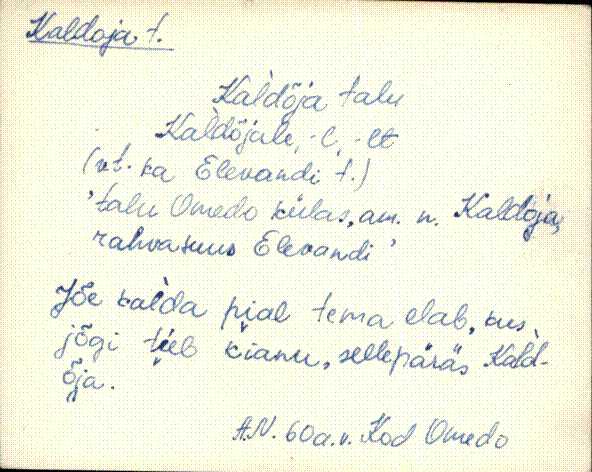 Kaldoja t.
Kal̀dõja talu
Kal̀dõjale, -l, -lt
(vt. ka Elevandi t.)
'talu Omedo külas, am. n. Kaldoja,
rahvasuus Elevandi'
Jõe kal̀da pial tema elab, kus
jõgi tieb kiänu, selleperäs Kald-
õja.
A.N. 60 a. v. Kod Omedo